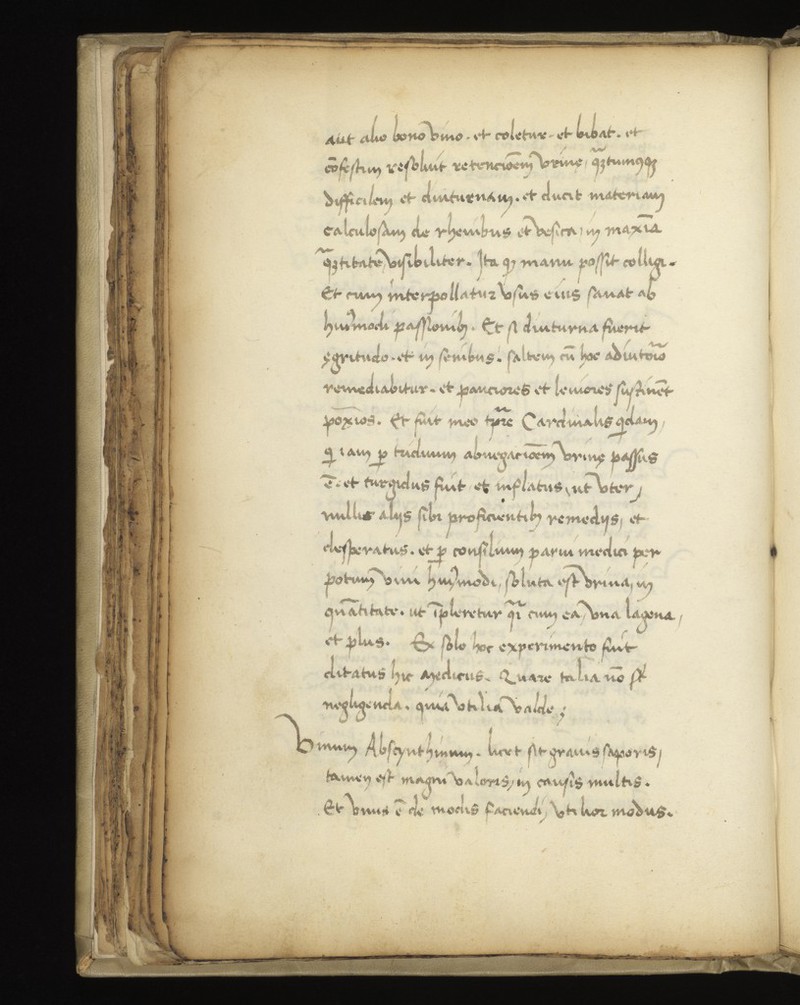 aut alio bono vino. et coletur. et bibat. et
cōfestim resoluit retencioēm vrinę, q̄ꝫtumcqꝫ
difficilem et diuturnam. et ducit materiam
calculosam de rhenibus et vesica, in maxīa
q̄ꝫtitate, visibiliter. Ita qꝫ manu possit colligi.
Et cum interpollatur vsus eius sanat ab
huiꝰmodi passionibꝫ. Et si diuturna fuerit
ęgritudo. et in senibus. saltem cū hoc adiutorio
remediabitur. et pauciores et leuiores sustinēt
Et fuit meo tp̄re Cardinalis q̄dam,
qi iam ꝑ triduum abnegacioēm vrinę passus
ē. et turgidus fuit et inflatus, ut vter,
nullis alijs sibi proficientibꝫ remedijs, et
desperatus. et ꝑ consilium parui medici per
potum vini huiꝰmodi, soluta est vrina, in
quātitate. ut īpleretur cum ea, vna lagena,
et plus. Ex solo hoc experimento fuit
ditatus hic medicus. Quare talia nō st̄
negligenda. quia vtilia valde;
Vinum Abscynthinum. licet sit grauis saporis,
tamen est magni valoris, in causis multis.
Et vnus ē de modis faciendi, vtilior modus.